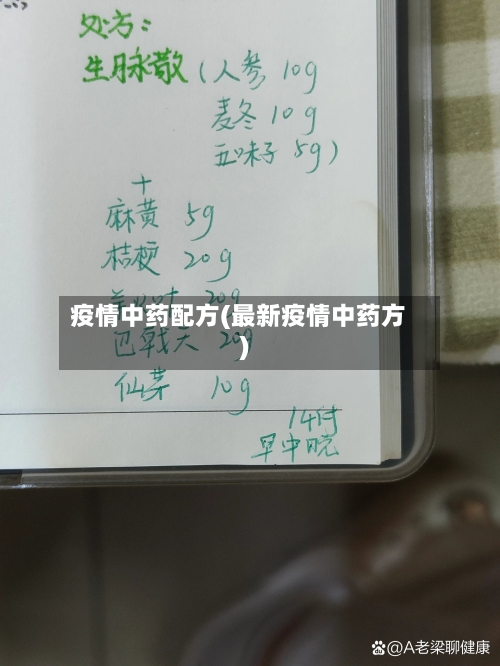 处方：
生脉散（人参 10g
麦冬 10g
五味子 5g）
+
麻黄 5g
桔梗 20g
20g
疫情中药配方(最新疫情中药方
)
巴戟天 20g
仙茅 10g
14付
早中晚
@A老梁聊健康